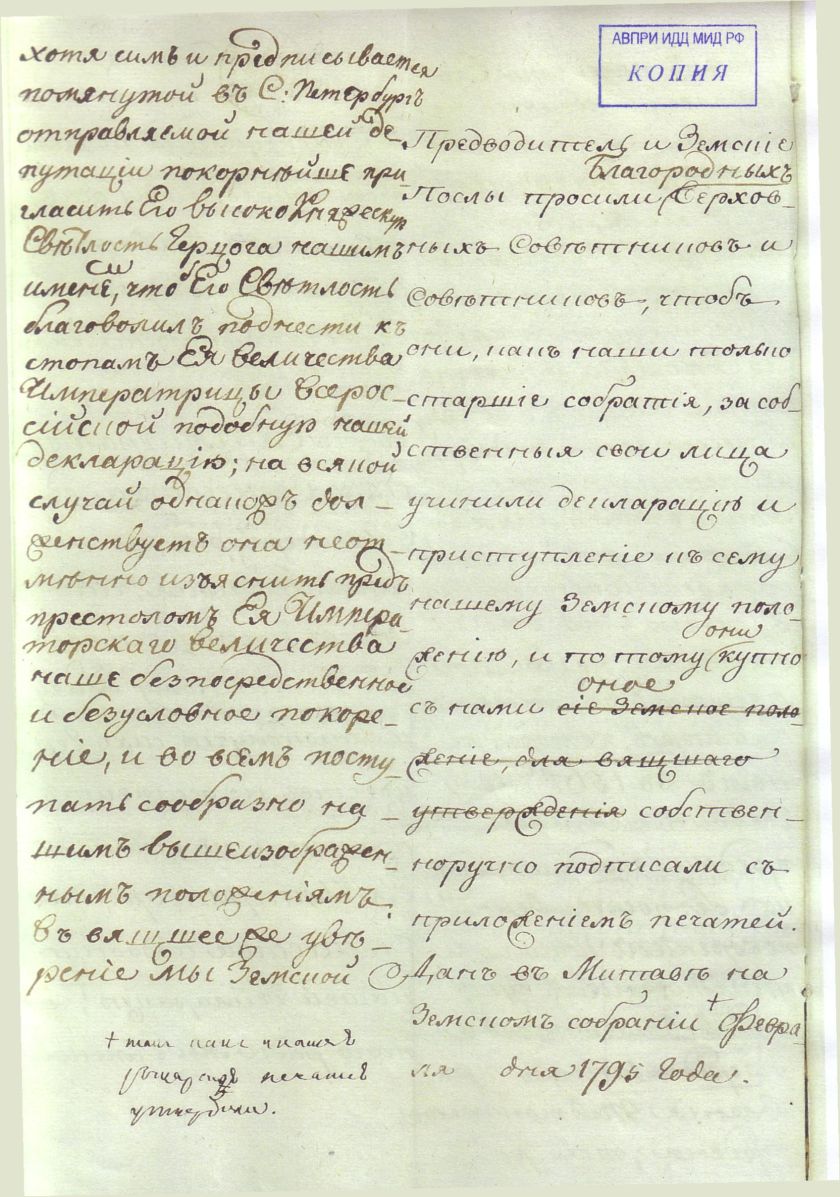 АВПРИ ИДД МИД РФ
КОПИЯ
хотя симъ и предписывается
помянутой въ С: Петербургъ
отправляемой нашей де-
путаціи покорнѣйше при-
гласить Его высоко Княжескую
Свѣтлость Герцога нашимъ
именемъ, чтобъ Его Свѣтлость
благоволилъ поднести къ
стопамъ Ея величества
Императрицы всерос-
сійской подобную нашей
декларацію; на всякой
случай однакожъ дол-
женствуетъ она неот-
мѣнно изъяснить предъ
престоломъ Ея Импера-
торскаго величества
наше безпосредственное
и безусловное покоре-
ніе, и во всемъ посту-
пать сообразно на-
шимъ вышеизображен-
нымъ положеніямъ.
Въ вящшее же увѣ-
реніе мы Земской
+ такъ какъ и нашею
рыцарскою печатью
утвердили.
Предводитель и Земскіе
Благородныхъ
Послы просили Верхов-
ныхъ Совѣтниковъ и
Совѣтниковъ, чтобъ
они, какъ наши только
старшіе собратія, за соб-
ственныя свои лица
учинили декларацію и
приступленіе къ сему
нашему Земскому поло-
они
женію, и по тому купно
оное
съ нами сіе Земское поло-
женіе, для вящшаго
утвержденія собствен-
норучно подписали съ
приложеніемъ печатей.
Данъ въ Митавѣ на
Земскомъ собраніи + Февра-
ля дня 1795 года.